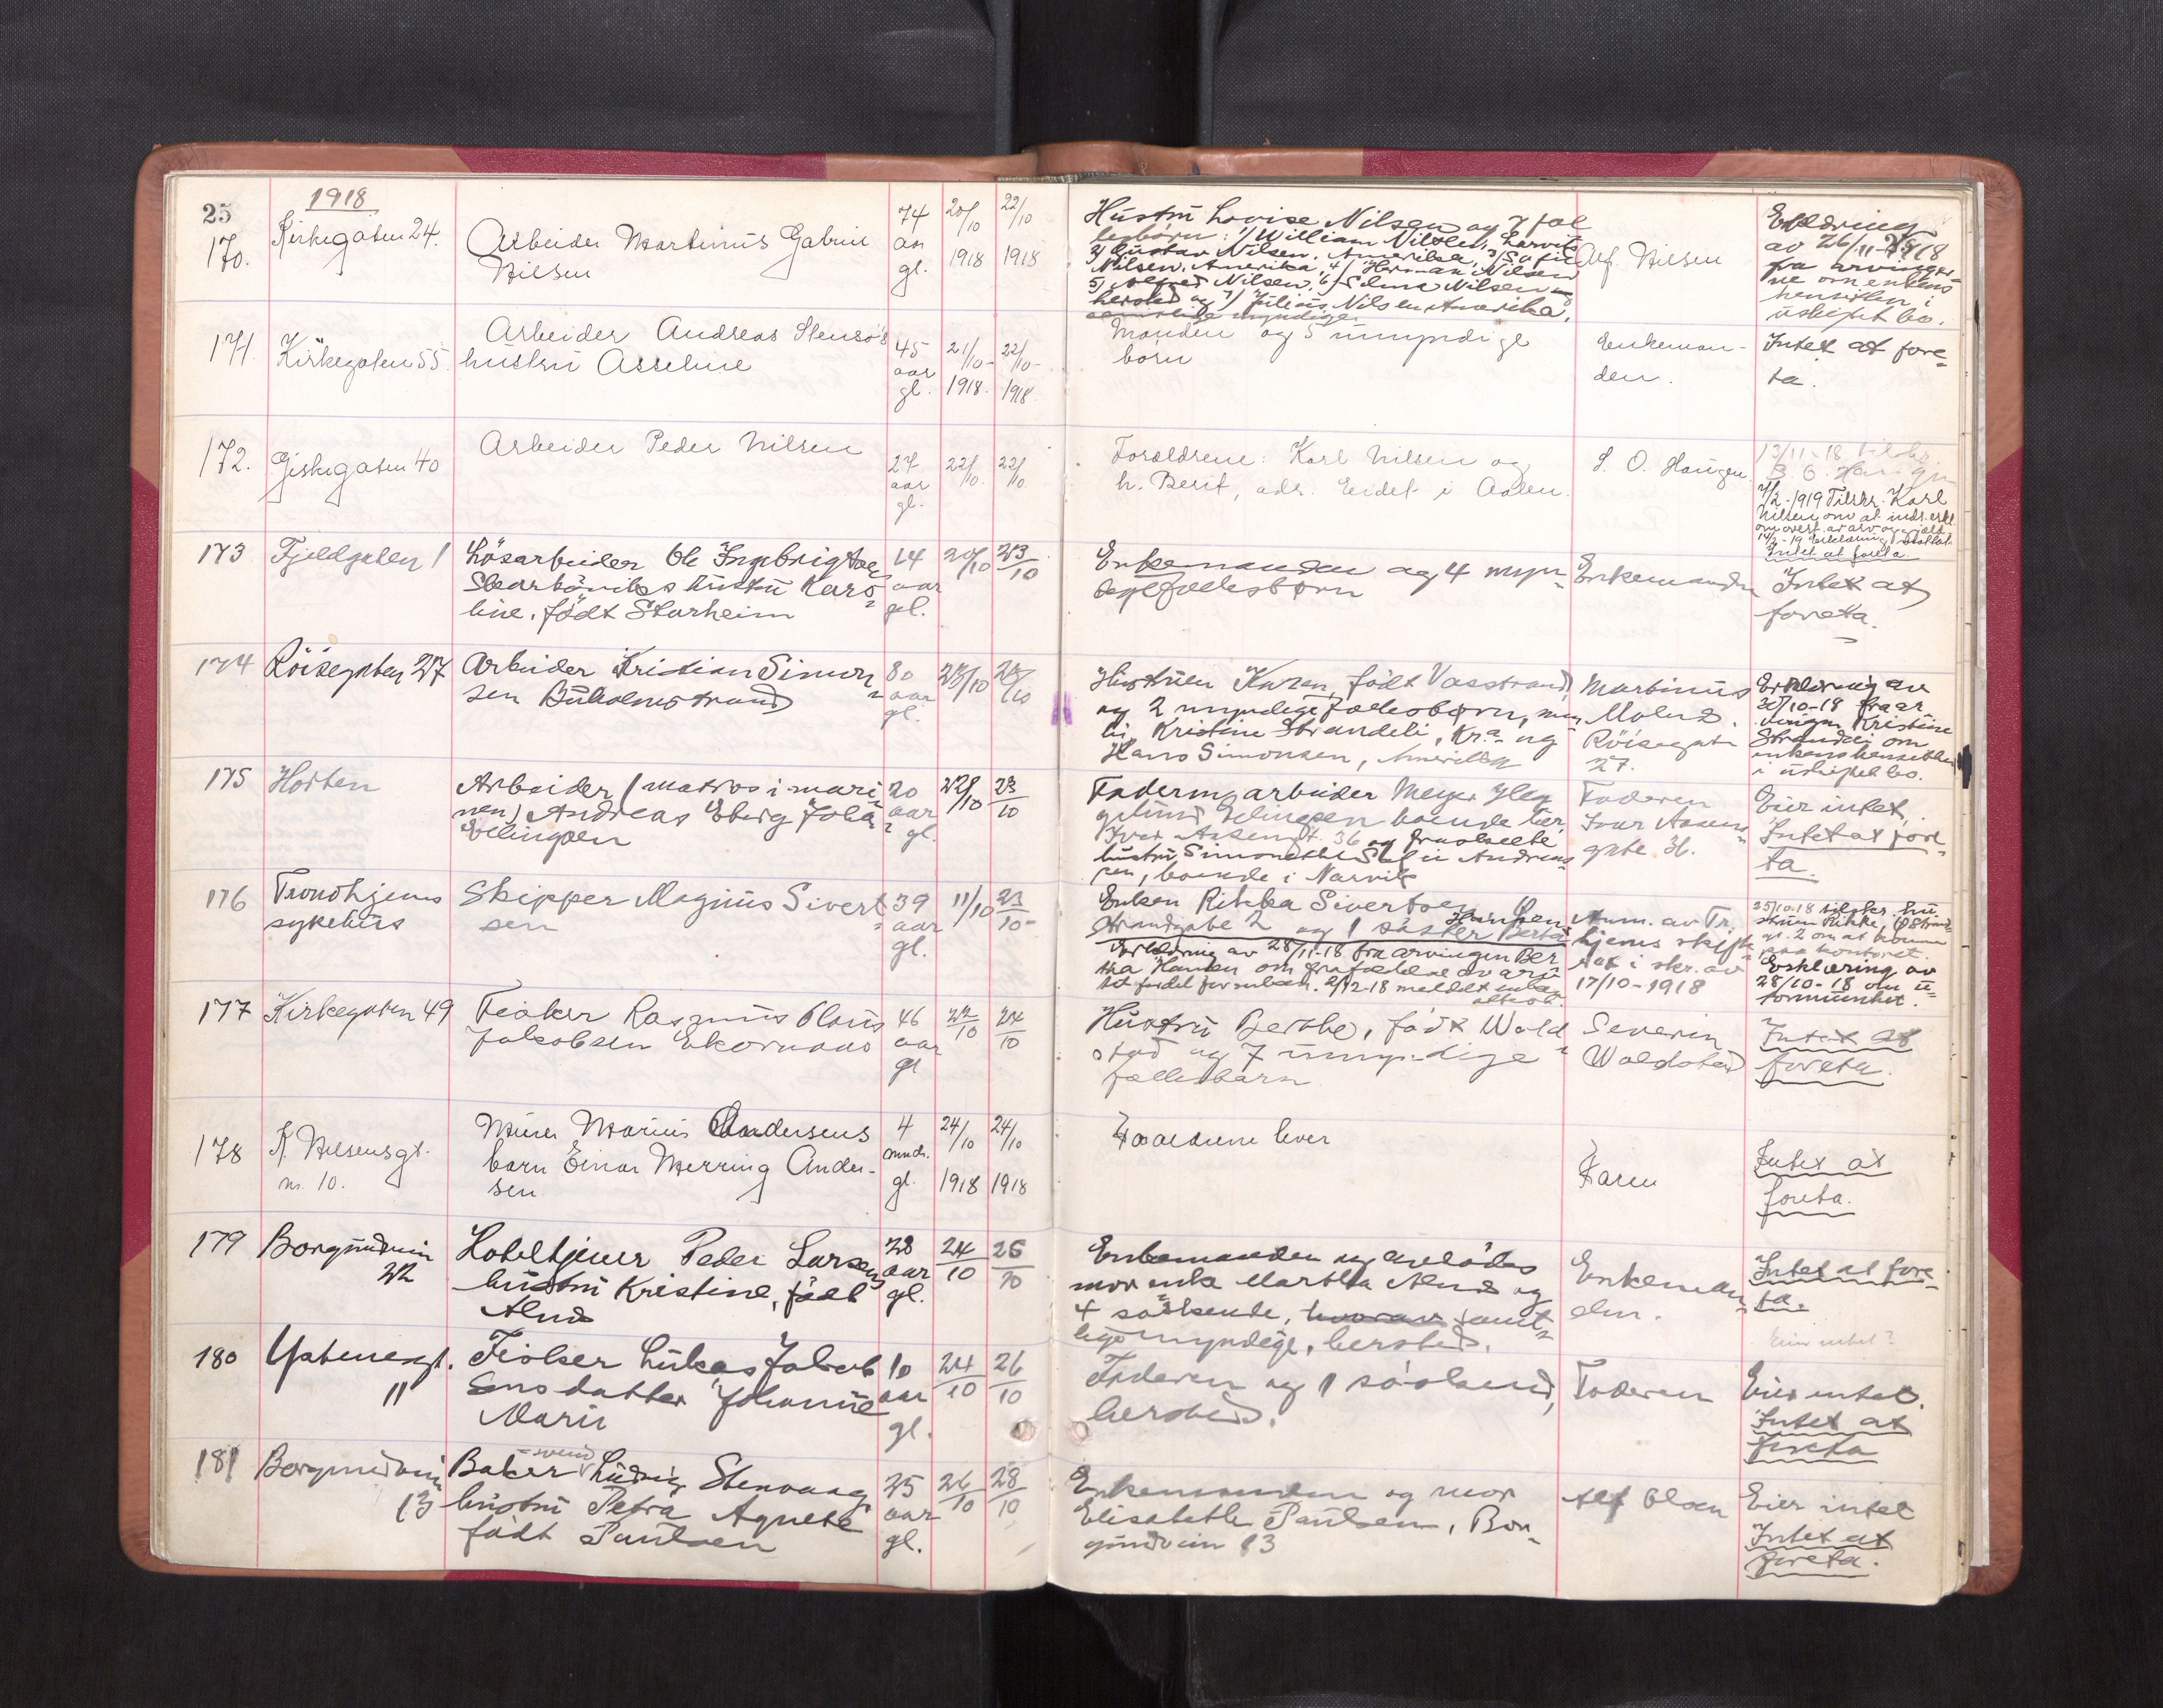 25
1918
170.
Kirkegaten 24.
Arbeider Martinus Gabriel
Nilsen
74
aar
gl.
20/10
1918
22/10
1918
Hustru Lovise Nilsen og 7 fæl
lesbørn: 1/ William Nilsen, Larvik
2/ Gustav Nilsen, Amerika, 3/ Sofie
Nilsen, Amerika, 4/ Herman Nilsen
5/ Alfred Nilsen, 6/ Selma Nilsen
hersted og 7/ Julius Nilsen Amerika,
samtlige myndige.
Alf. Nilsen
Erklæring
av 26/11-1918
fra arvinger
ne om enkens
hensitten i
uskiftet bo.
171.
Kirkegaten 55.
Arbeider Andreas Stensø's
hustru Asseline
45
aar
gl.
21/10-
1918.
22/10-
1918
Manden og 5 umyndige
børn
Enkeman-
den.
Intet at fore-
ta.
172.
Giskegaten 40
Arbeider Peder Nilsen
27
aar
gl.
22/10.
22/10
Forældrene: Karl Nilsen og
h. Berit, adr. Eidet i Aalen.
S. O. Haugen.
13/11-18 tilskr.
7/2-1919 Tilskr. Karl
Nilsen om at inds. erkl.
om overt. av arv og gjæld
Intet at foreta.
173
Fjeldgaten 1
Løsarbeider Ole Ingebrigtsen
Skarbøviks hustru Karo-
line, født Starheim
64
aar
gl.
20/10
23/10
Enkemanden og 4 myn-
dige fællesbørn
Enkemanden
Intet at
foreta.
174
Röisegaten 27
Arbeider Kristian Simon-
sen Buholmstrand
80
aar
gl.
23/10
25/10
Hustruen Karen, født Vasstrand,
og 2 myndige fællesbørn, nem-
lig Kristine Strandeli, Kr.a og
Hans Simonsen, Amerika
Martinus
Molnes.
Röisegaten
27.
Erklæring av
25/10-18 fra ar
vingen Kristine
Strandeli om
enkens hensitten
i uskiftet bo.
175
Horten
Arbeider (matros i mari-
nen) Andreas Eberg Johan
Ellingsen
20
aar
gl.
22/10
23/10
Faderen, arbeider Meyer
Ellingsen boende her
Ivar Aasensgt. 36 og fraskilte
hustru Simonette Andreas-
sen, boende i Narvik
Faderen
Ivar Aasens-
gate 36.
Eier intet.
Intet at fore-
ta.
176
Trondhjems
sykehus
Skipper Magnus Sivert-
sen
39
aar
gl.
11/10
23/10-
Enken Rikka Sivertsen,
Strandgate 2 og 1 søster Berta
Hansen
Erklæring av 28/11-18 fra arvingen Ber
tha Hansen om frafaldelse av arv
til fordel for enken. 2/12-18 meldt enken
Anm. av Tr.
hjems skifte-
ret i skr. av
17/10-1918
25/10-18 tilskr. hu-
struen Rikke, Strand
gt. 2 om at komme
paa kontoret.
Erklæring av
28/10-18 om u-
formuenhet.
177
Kirkegaten 49
Fisker Rasmus Olaus
Jakobsen Ekornaas
46
aar
gl
22/10
24/10
Hustru Berthe, født Wold-
stad og 7 umyndige
fællesbarn
Severin
Woldstad
Intet at
foreta.
178
K. Nilsensgt.
nr. 10.
Murer Marius Andersens
barn Einar Merring Ander-
sen
4
mndr.
gl.
24/10
1918
24/10
1918
Forældrene lever
Faren
Intet at
foreta.
179
Borgundvein
22
Hotelltjener Peder Larsens
hustru Kristine, født
Alnes
28
aar
gl.
24/10
25/10
Enkemanden og avdødes
mor enke Martha Alnes og
4 søskende, hvorav samt-
lige myndige, hersted.
Enkeman-
den.
Intet at fore-
ta.
Eier intet?
180
Ystenesgt.
11
Fisker Lukas Jakob
sens datter Johanne
Marie
10
aar
gl.
24/10
26/10
Faderen og 1 søskend,
hersted.
Faderen
Eier intet.
Intet at
foreta
181
Borgundvein
13
Bakersvend Ludvig Stenvaag
hustru Petra Agnete
født Paulsen
25
aar
gl.
26/10
28/10
Enkemanden og mor
Elisabeth Paulsen, Bor-
gundvein 13
Alf Olsen
Eier intet
Intet at
foreta.